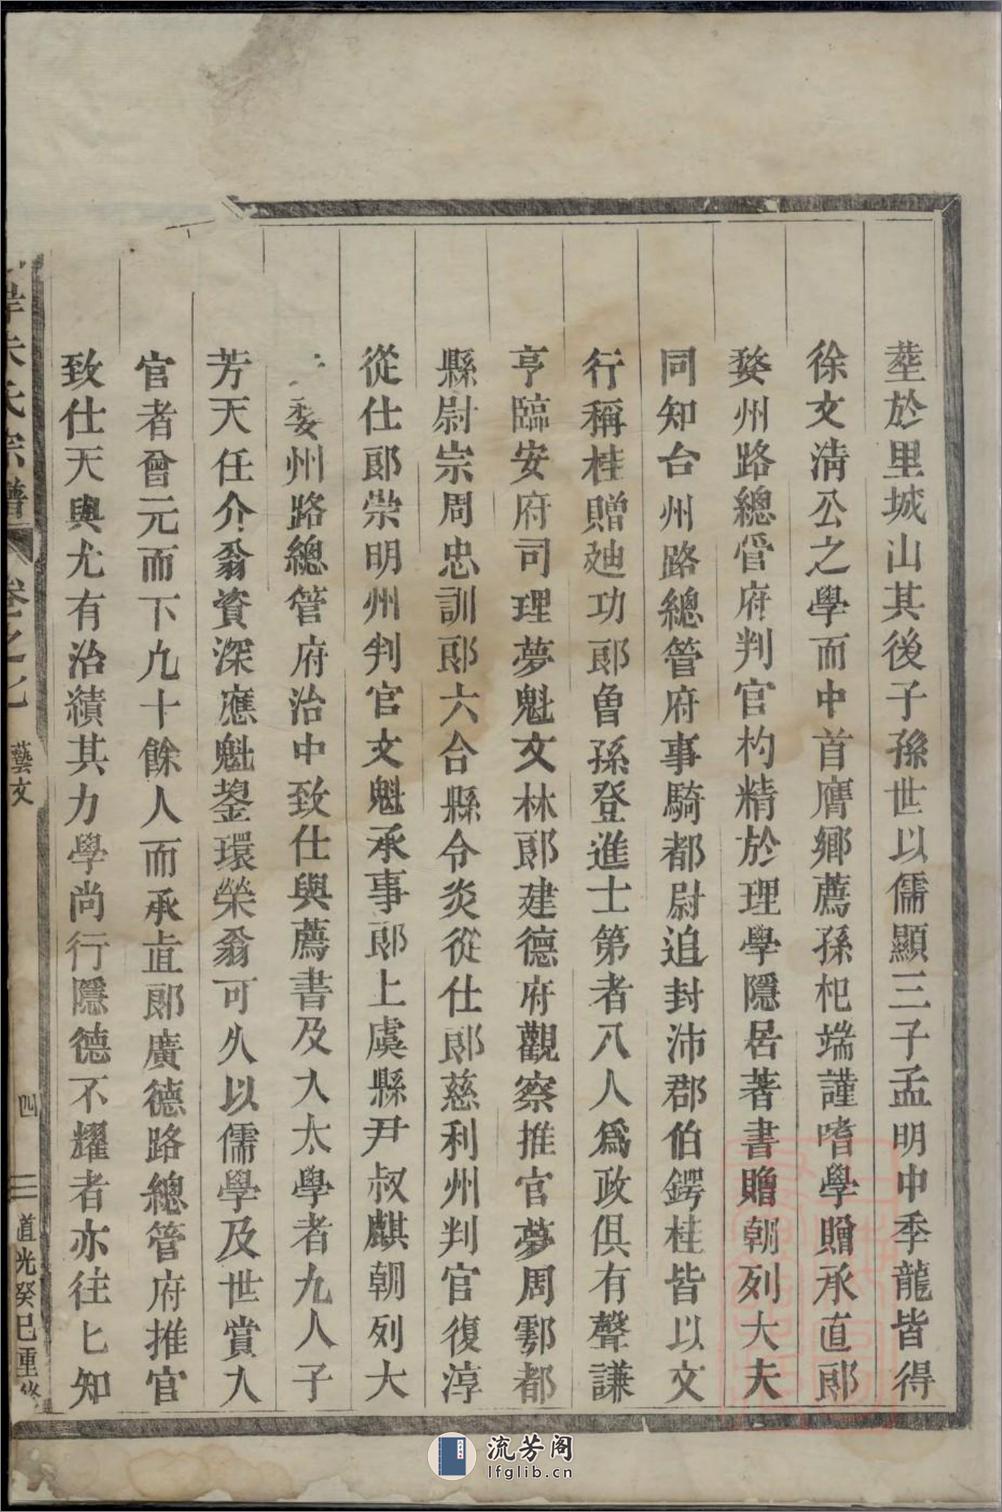 塟於里城山其後子孫世以儒顯三子孟明中季龍皆得
徐文清公之學而中首膺鄉薦孫杞端謹嗜學贈承直郎
婺州路總管府判官杓精於理學隱居著書贈朝列大夫
同知台州路總管府事騎都尉追封沛郡伯鍔桂皆以文
行稱桂贈廸功郎曾孫登進士第者八人爲政俱有聲謙
亨臨安府司理夢魁文林郎建德府觀察推官夢周雩都
縣尉宗周忠訓郎六合縣令炎從仕郎慈利州判官復淳
從仕郎崇明州判官文魁承事郎上虞縣尹叔麒朝列大
婺州路總管府治中致仕與薦書及入太學者九人子
芳天任介翁資深應魁鋆環榮翁可久以儒學及世賞入
官者曾元而下九十餘人而承直郎廣德路總管府推官
致仕天與尤有治績其力學尚行隱德不耀者亦往匕知
朱氏宗譜 卷之七 藝文 四 道光癸巳重修
流芳阁
lfglib.cn